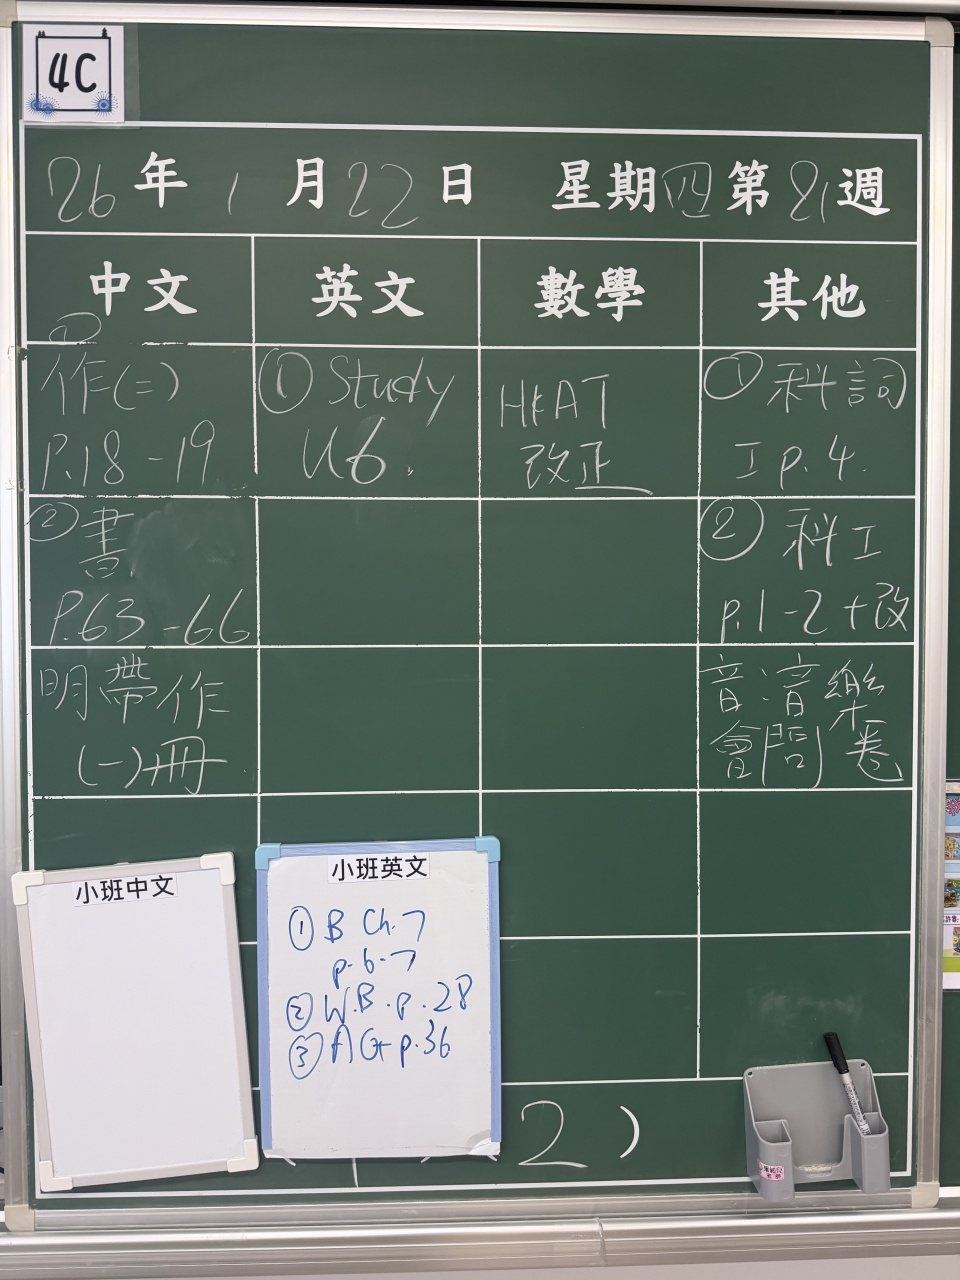 4C
26年1月22日 星期四第21週
中文 英文 數學 其他
①
作(二)
P.18-19
① Study
U6.
HKAT
改正
① 科詞
工 p.4.
② 書
P.63-66
② 科工
p.1-2+改
明帶作
(一)冊
音樂
會問卷
小班中文
小班英文
① B Ch.7
p.6-7
② W.B. p.28
③ AG p.36
2)